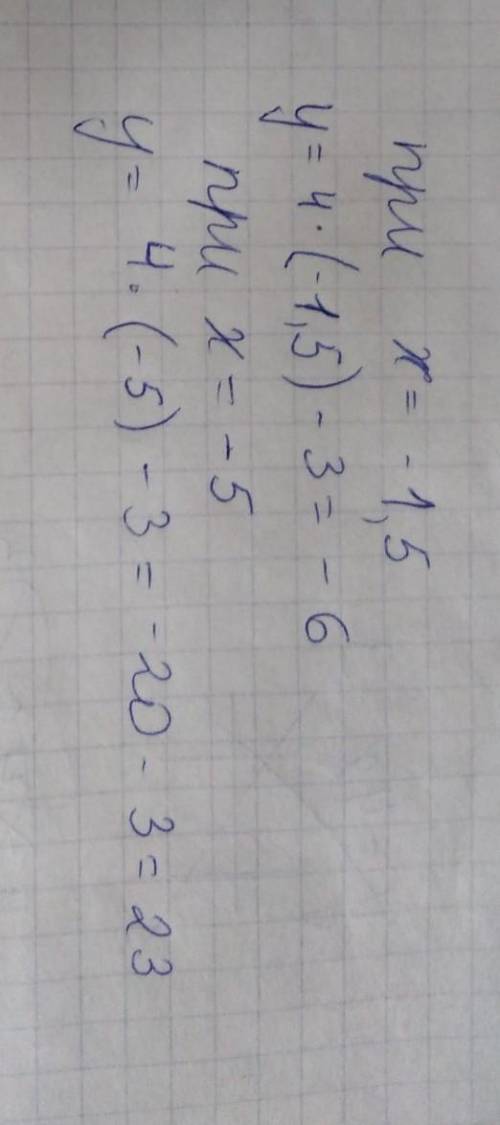 при x = -1,5
y = 4 · (-1,5) - 3 = - 6
при x = - 5
y = 4 · (-5) - 3 = -20 - 3 = 23